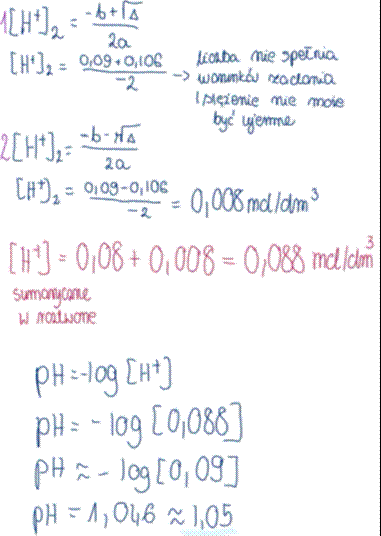 1 [H⁺]₂ = -b+√Δ / 2a
[H⁺]₂ = 0,09+0,106 / -2 → liczba nie spełnia
warunków zadania
stężenie nie może
być ujemne
2 [H⁺]₂ = -b-√Δ / 2a
[H⁺]₂ = 0,09-0,106 / -2 = 0,008 mol/dm³
[H⁺] = 0,08 + 0,008 = 0,088 mol/dm³
sumaryczne
w roztworze
pH = -log [H⁺]
pH = - log [0,088]
pH ≈ - log [0,09]
pH = 1,046 ≈ 1,05